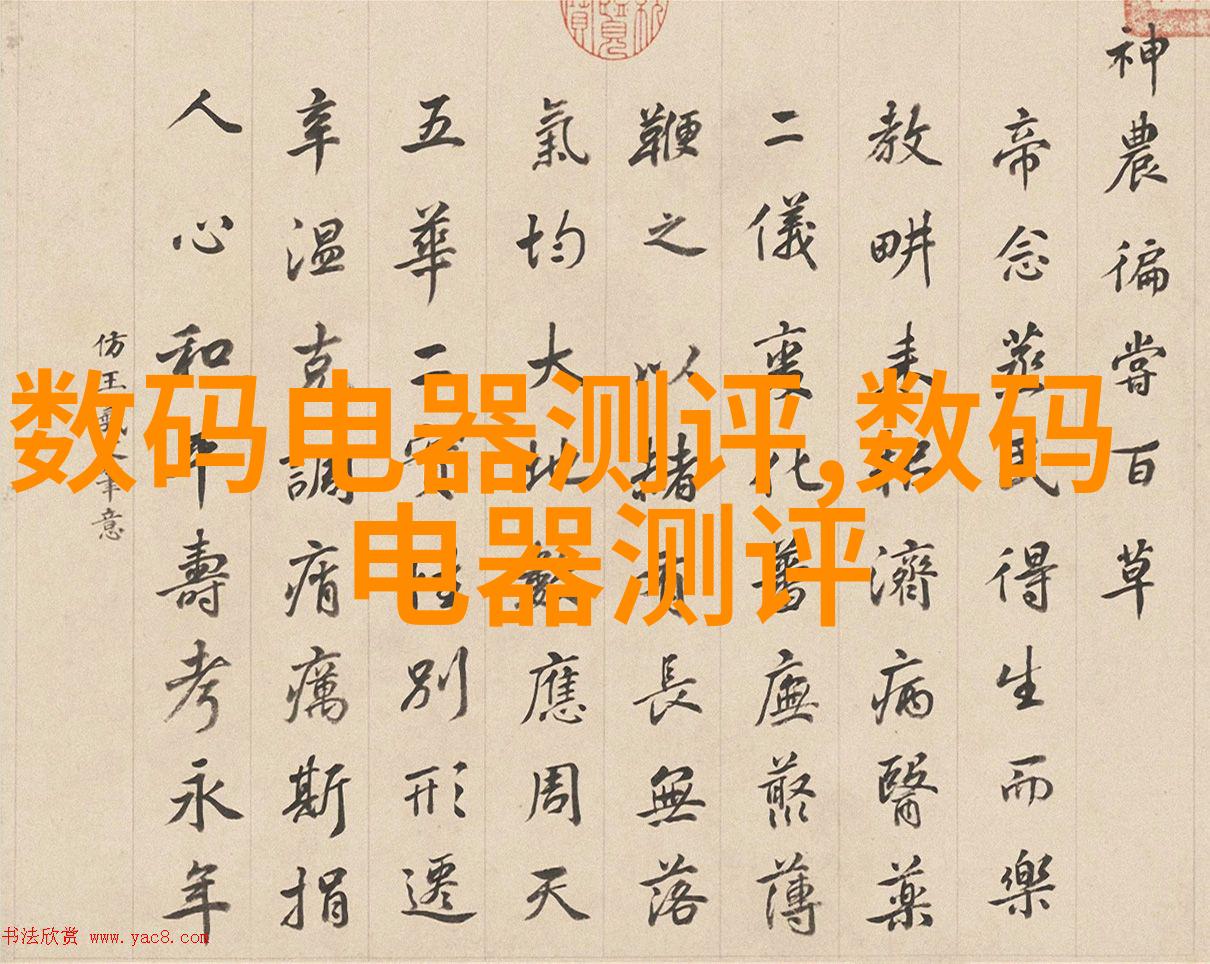 神農徧嘗百草
帝念蒸民得生而樂
教畊耒耜濟病醫藥
二儀變化蕃廡藂薄
鞭之以赭長無落
氣均大數應周天
五華二實別形遷
辛温克調痟癘斯捐
人心和平壽考永年
仿王羲之筆意
数码电器测评,数码
电器测评
书法欣赏 www.yac8.com